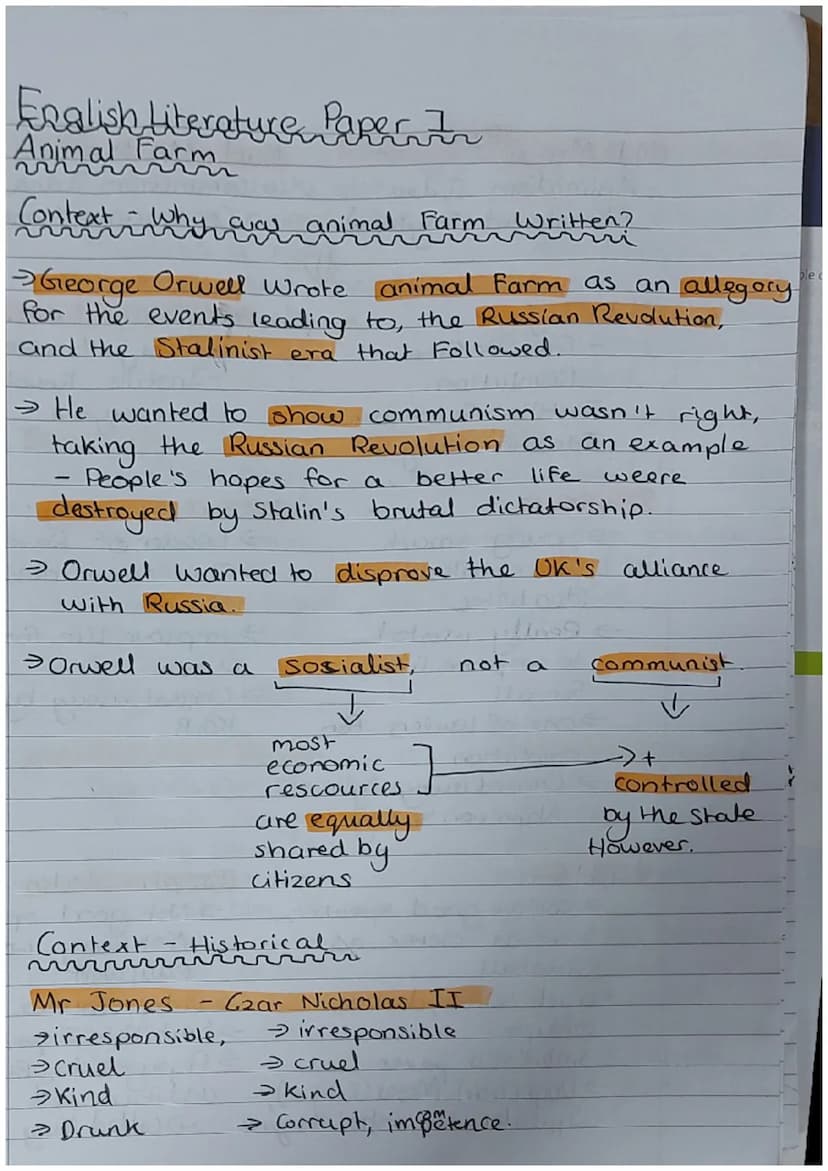 English Literature Paper 1
Animal Farm
Context - Why was animal Farm written?
→ George Orwell wrote animal Farm as an allegory
for the events leading to, the Russian Revolution,
and the Stalinist era that Followed.
→ He wanted to show communism wasn't right,
taking the Russian Revolution as an example
- People's hopes for a better life weere
destroyed by Stalin's brutal dictatorship.
→ Orwell wanted to disprove the UK's alliance
with Russia.
→ Orwell was a sosialist, not a communist.
most
economic
rescources
are equally
shared by
citizens
→ +
controlled
by the state
However.
Context - Historical
Mr Jones - Czar Nicholas II
→ irresponsible, → irresponsible
→ Cruel → cruel
→ Kind → Kind
→ Drunk → Corrupt,